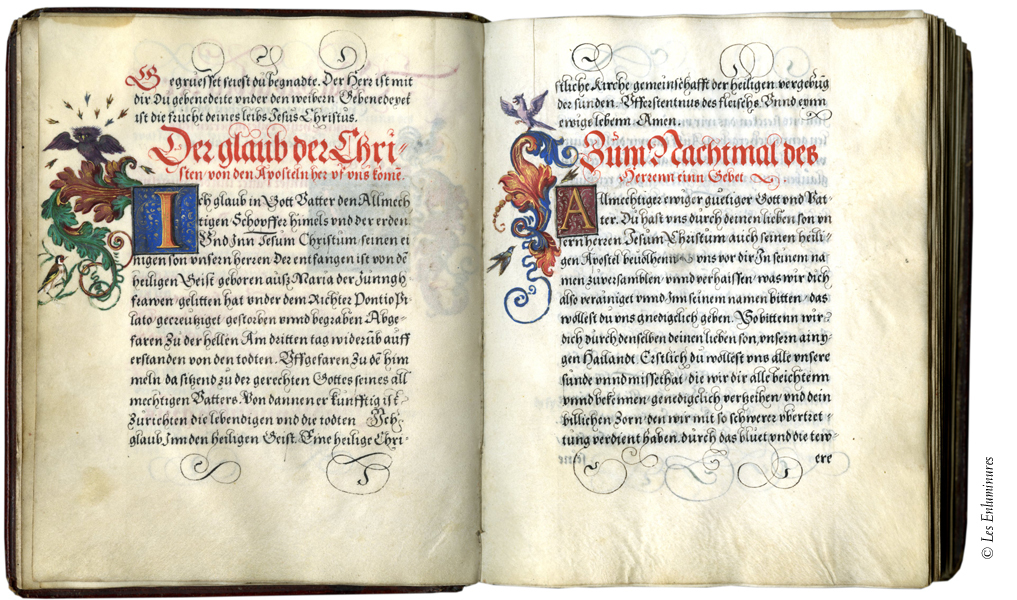 Gegruesset seiest du begnadte. Der Herr ist mit
dir Du gebenedeite vnder den weibern Gebenedeyet
ist die frucht deines leibs Jesus Christus.
Der glaub der Chri-
sten von den Aposteln her vf vns komē.
Ich glaub in Gott Vatter den Allmech
tigen Schopffer himels vnd der erden
Vnd Jnn Jesum Christum seinen ei
nigen son vnsern herren Der entfangen ist von dē
heiligen Geist geboren auß Maria der Junngh
frawen gelitten hat vnder dem Richter Pontio Pi
lato gecreutziget gestorben vnnd begraben Abge-
faren Zu der hellen Am dritten tag widerüb auff
erstanden von den todten. Vffgefaren Zu dē him
meln da sitzend zu der gerechten Gottes seines all
mechtigen Vatters. Von dannen er kunfftig ist
Zurichten die lebendigen vnd die todten Jch
glaub Jnn den heiligen Geist. Eine heilige Chri-
stliche Kirche gemeinschafft der heiligen vergebūg
der sunden. Vfferstentnus des fleischs Vnnd eynn
ewigs lebenn. Amen.
Zum Nachtmal des
Herrenn einn Gebet.
Allmechtiger ewiger guetiger Gott vnd Vat-
ter. Du hast vns durch deinen lieben son vn
sern herren Jesum Christum auch seinen heili-
gen Apostel beuolhenn vns vor dir Jn seinem na
men zuversamblen vnd verhaissen was wir dich
also verainiget vnnd Jnn seinem namen bitten das
wöllest du vns gnedigclich geben. So bitten wir
dich durch denselben deinen lieben son, vnsern ainy-
gen Hailandt Erstlich du wöllest vns alle vnsere
sunde vnnd missethat die wir dir alle beichtenn
vnnd bekennen genedigclich verzeihen vnd dein
billichen Zorn den wir mit so schwerer vbertret-
tung verdient haben. durch das bluet vnd die tew-
ere
© Les Enluminures